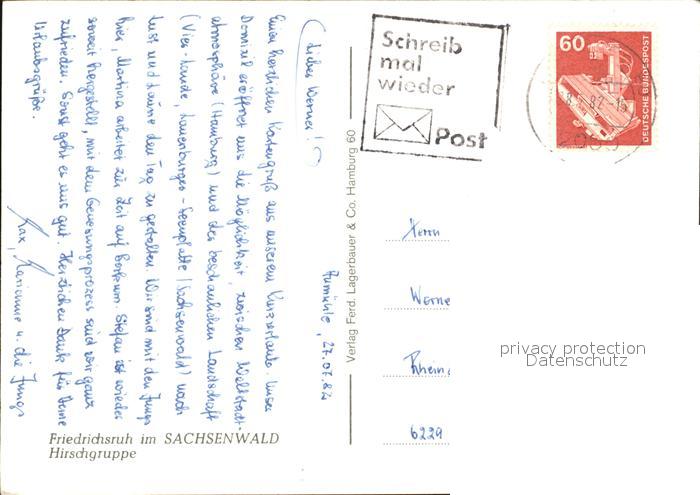 Aumühle, 27.07.82
(Lieber Werner!)
Einen herzlichen Kartengruß aus unserem Kurzurlaub. Unser
Domizil eröffnet uns die Möglichkeit, zwischen Weltstadt-
atmosphäre (Hamburg) und der beschaulichen Landschaft
(Vier-Lande, Lauenburger-Seenplatte/Sachsenwald) nach
Lust und Laune den Tag zu gestalten. Wir sind mit den Jungs
hier, Martina arbeitet zur Zeit auf Borkum. Stefan ist wieder
soweit hergestellt, mit dem Genesungsprozess sind wir ganz
zufrieden. Sonst geht es uns gut. Herzlichen Dank für Deine
Urlaubsgrüße.
Max, Marianne u. die Jungs
Friedrichsruh im SACHSENWALD
Hirschgruppe
Verlag Ferd. Lagerbauer & Co. Hamburg 60
Schreib
mal
wieder
Post
60
DEUTSCHE BUNDESPOST
Herrn
Werne
Rhein
6229
privacy protection
Datenschutz